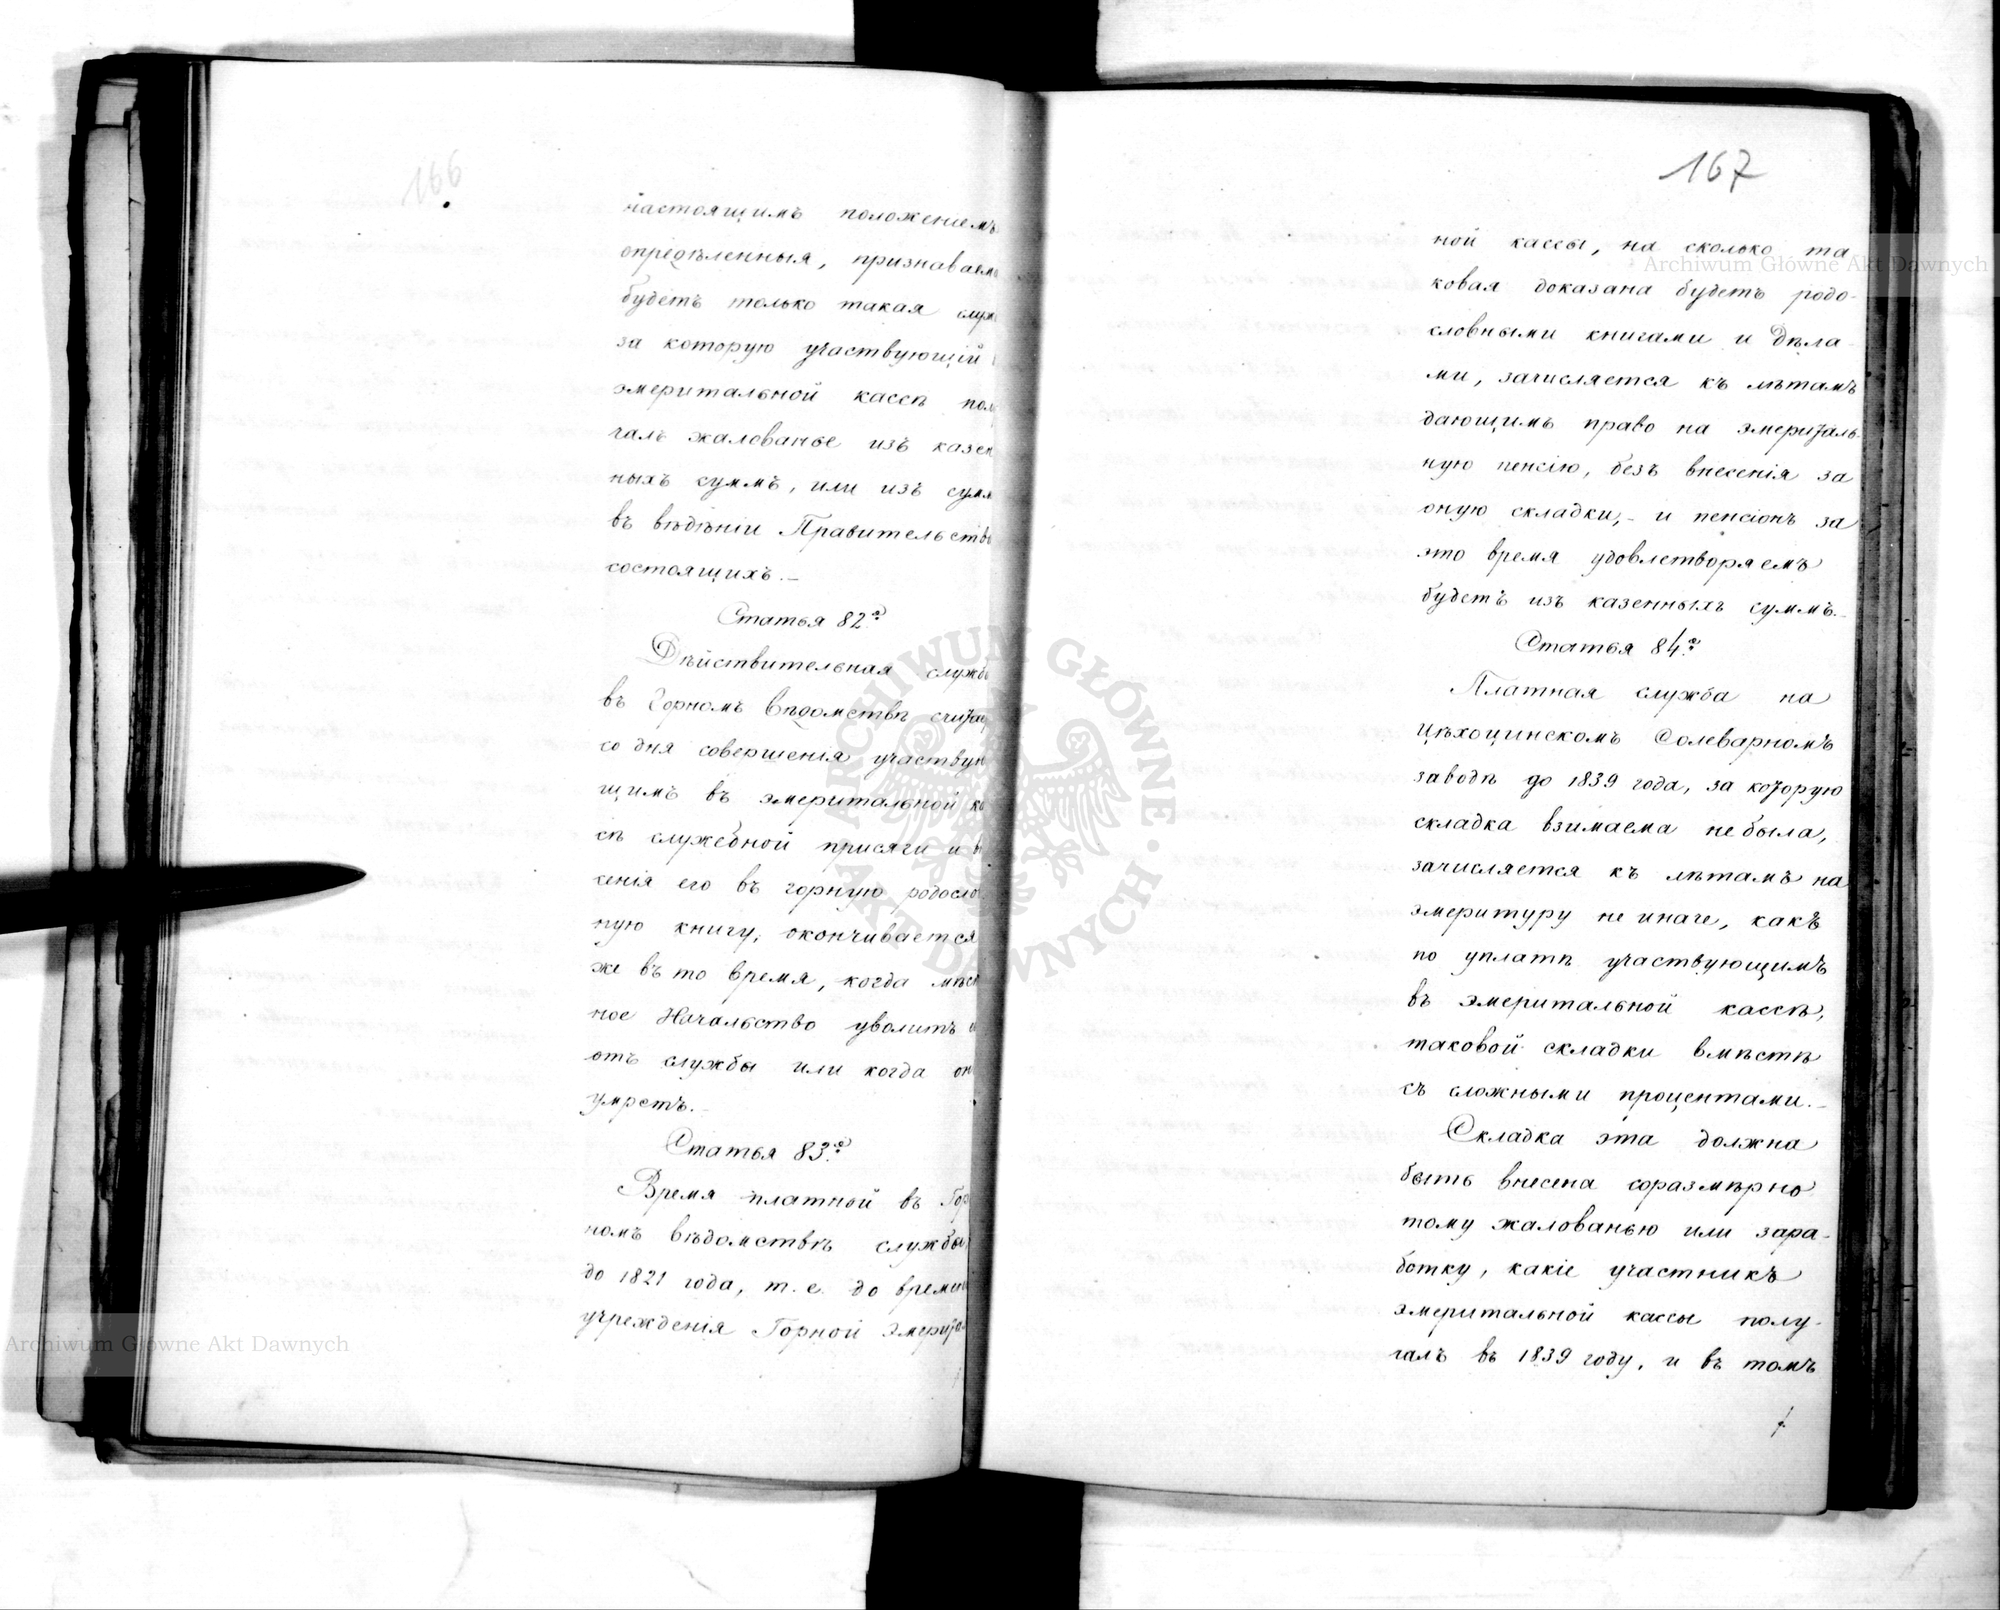 166
настоящимъ положеніемъ
опредѣленныя, признаваем
будетъ только такая служ
за которую участвующій
эмеритальной кассѣ пол
чалъ жалованье изъ казен
ныхъ суммъ, или изъ сумм
въ вѣдѣніи Правительств
состоящихъ.—
Статья 82.а
Дѣйствительная служб
въ Горномъ Вѣдомствѣ счита
со дня совершенія участвую
щимъ въ эмеритальной ка
сѣ служебной присяги и в
сенія его въ горную родосло
ную книгу, окончивается
же въ то время, когда мѣст
ное Начальство уволитъ е
отъ службы или когда он
умретъ.—
Статья 83.а
Время платной въ Гор
номъ вѣдомствѣ службы
до 1821 года, т. е. до времен
учрежденія Горной Эмеритал
167
ной кассы, на сколько та
ковая доказана будетъ родо-
словными книгами и Дѣла-
ми, зачисляется къ лѣтамъ
дающимъ право на эмериталь-
ную пенсію, безъ внесенія за
оную складки,– и пенсіонъ за
это время удовлетворяемъ
будетъ изъ казенныхъ суммъ.—
Статья 84.а
Платная служба на
Цѣхоцинскомъ Солеварномъ
заводѣ до 1839 года, за которую
складка взимаема не была,
зачисляется къ лѣтамъ на
эмеритуру не иначе, какъ
по уплатѣ участвующимъ
въ эмеритальной кассѣ,
таковой складки вмѣстѣ
съ сложными процентами.—
Складка эта должна
быть внесена соразмѣрно
тому жалованью или зара-
ботку, какіе участникъ
эмеритальной кассы полу-
чалъ въ 1839 году, и въ томъ
Archiwum Główne Akt Dawnych
ARCHIWUM GŁÓWNE AKT DAWNYCH
Archiwum Główne Akt Dawnych